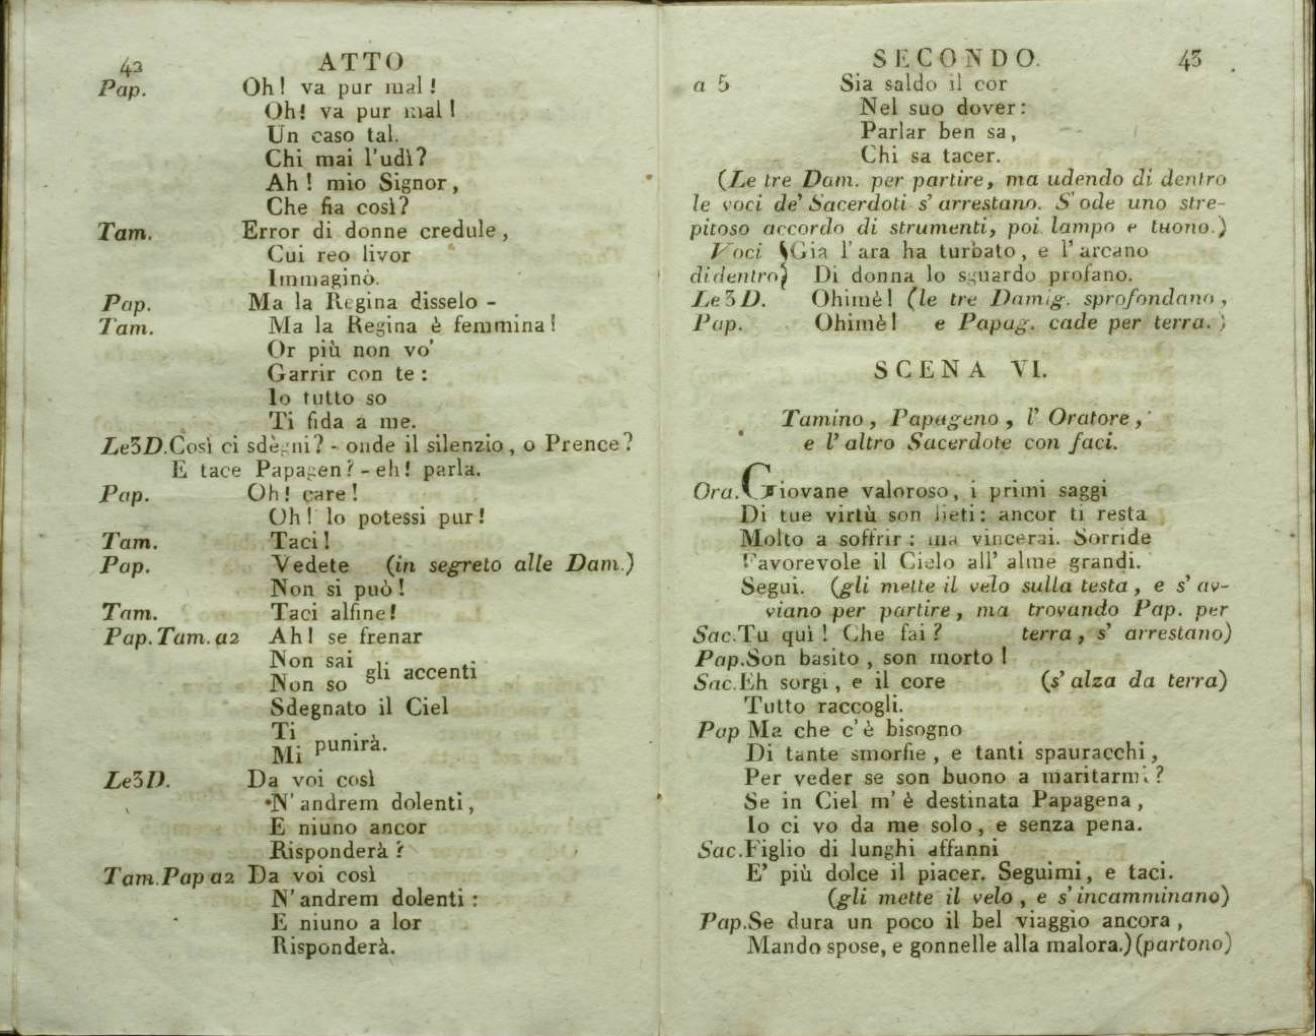 42 ATTO
Pap. Oh! va pur mal!
Oh! va pur mal!
Un caso tal.
Chi mai l'udì?
Ah! mio Signor,
Che fia così?
Tam. Error di donne credule,
Cui reo livor
Immaginò.
Pap. Ma la Regina disselo -
Tam. Ma la Regina è femmina!
Or più non vo'
Garrir con te:
Io tutto so
Ti fida a me.
Le3D. Così ci sdègni? - onde il silenzio, o Prence?
E tace Papagen? - eh! parla.
Pap. Oh! care!
Oh! lo potessi pur!
Tam. Taci!
Pap. Vedete (in segreto alle Dam.)
Non si può!
Tam. Taci alfine!
Pap. Tam. a2 Ah! se frenar
Non sai
Non so gli accenti
Sdegnato il Ciel
Ti
Mi punirà.
Le3D. Da voi così
N'andrem dolenti,
E niuno ancor
Risponderà?
Tam. Pap a2 Da voi così
N'andrem dolenti:
E niuno a lor
Risponderà.
SECONDO. 43
a 5 Sia saldo il cor
Nel suo dover:
Parlar ben sa,
Chi sa tacer.
(Le tre Dam. per partire, ma udendo di dentro
le voci de' Sacerdoti s'arrestano. S'ode uno stre-
pitoso accordo di strumenti, poi lampo e tuono.)
Voci {Gia l'ara ha turbato, e l'arcano
didentro} Di donna lo sguardo profano.
Le3D. Ohimè! (le tre Damig. sprofondano,
Pap. Ohimè! e Papag. cade per terra.)
SCENA VI.
Tamino, Papageno, l'Oratore,
e l'altro Sacerdote con faci.
Ora. Giovane valoroso, i primi saggi
Di tue virtù son lieti: ancor ti resta
Molto a soffrir: ma vincerai. Sorride
Favorevole il Cielo all'alme grandi.
Segui. (gli mette il velo sulla testa, e s'av-
viano per partire, ma trovando Pap. per
Sac. Tu quì! Che fai? terra, s'arrestano)
Pap. Son basito, son morto!
Sac. Eh sorgi, e il core (s'alza da terra)
Tutto raccogli.
Pap Ma che c'è bisogno
Di tante smorfie, e tanti spauracchi,
Per veder se son buono a maritarmi?
Se in Ciel m'è destinata Papagena,
Io ci vo da me solo, e senza pena.
Sac. Figlio di lunghi affanni
E' più dolce il piacer. Seguimi, e taci.
(gli mette il velo, e s'incamminano)
Pap. Se dura un poco il bel viaggio ancora,
Mando spose, e gonnelle alla malora.) (partono)